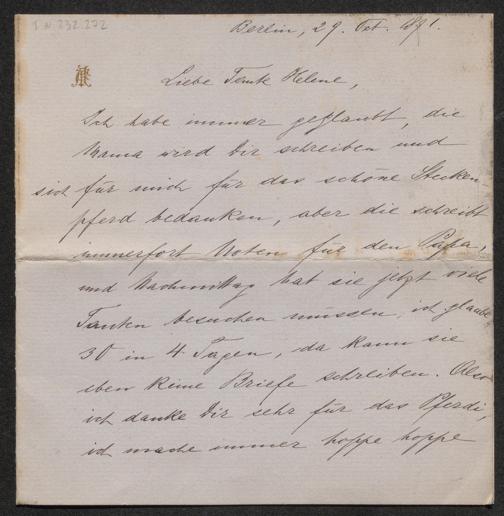 I N 232.272
Berlin, 29. Oct. 1871.
Liebe Tante Helene,
Ich habe immer geglaubt, die
Mama wird Dir schreiben und
sich für mich für das schöne Stecken-
pferd bedanken, aber die schreibt
immerfort Noten für den Papa,
und Nachmittag hat sie jetzt viele
Tanten besuchen müssen, ich glaube
30 in 4 Tagen, da kann sie
eben keine Briefe schreiben. Also
ich danke Dir sehr für das Pferdi,
ich mache immer hoppe hoppe